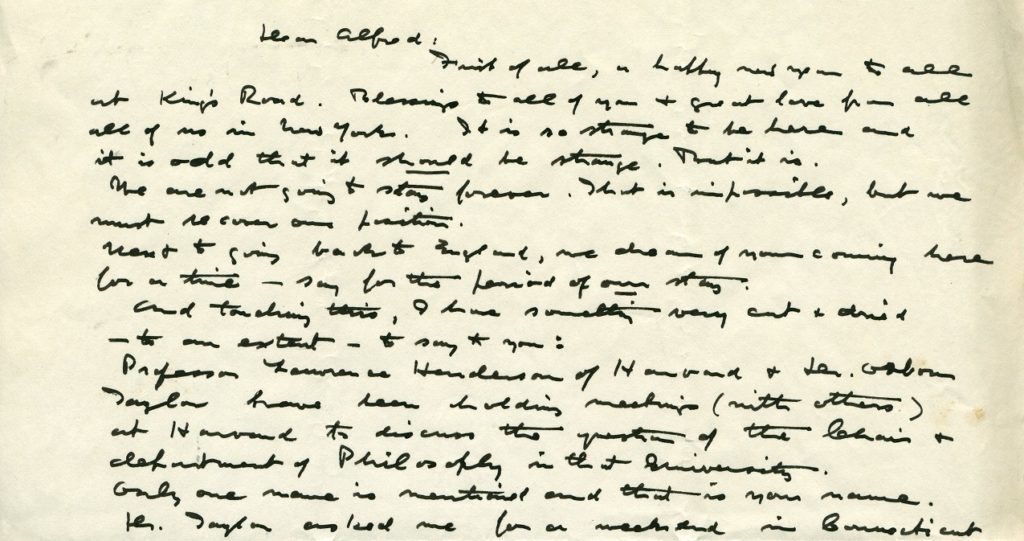 Dear Alfred:
First of all, a happy new year to all
at King's Road. Blessings to all of you + great love from all
all of us in New York. It is so strange to be here and
it is odd that it should be strange. But it is.
We are not going to stay forever. That is impossible, but we
must recover our position.
Next to going back to England, we dream of your coming here
for a time – say for the period of our stay.
And touching this, I have something very cut + dried
– to an extent – to say to you:
Professor Lawrence Henderson of Harvard + Dr. Osborn
Taylor have been holding meetings (with others)
at Harvard to discuss the question of the Chair +
department of Philosophy in that University.
Only one name is mentioned and that is your name.
Dr. Taylor asked me for a weekend in Connecticut